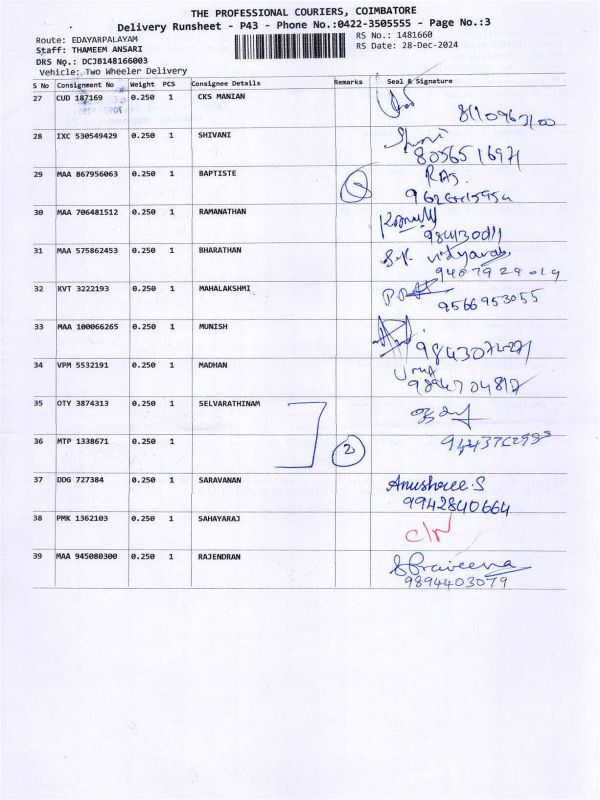 THE PROFESSIONAL COURIERS, COIMBATORE
Delivery Runsheet - P43 - Phone No.:0422-3505555 - Page No.:3
Route: EDAYARPALAYAM RS No.: 1481660
Staff: THAMEEM ANSARI RS Date: 28-Dec-2024
DRS No.: DCJB148166003
Vehicle: Two Wheeler Delivery
S No Consignment No Weight PCS Consignee Details Remarks Seal & Signature
27 CUD 187169 0.250 1 CKS MANIAN
28 IXC 530549429 0.250 1 SHIVANI
8056516971
29 MAA 867956063 0.250 1 BAPTISTE
30 MAA 706481512 0.250 1 RAMANATHAN
31 MAA 575862453 0.250 1 BHARATHAN
32 KVT 3222193 0.250 1 MAHALAKSHMI
9566953055
33 MAA 100066265 0.250 1 MUNISH
34 VPM 5532191 0.250 1 MADHAN
35 OTY 3874313 0.250 1 SELVARATHINAM
36 MTP 1338671 0.250 1 2
37 DDG 727384 0.250 1 SARAVANAN Anushree.S
9942840664
38 PMK 1362103 0.250 1 SAHAYARAJ
39 MAA 945080300 0.250 1 RAJENDRAN S Praveena
9894403079